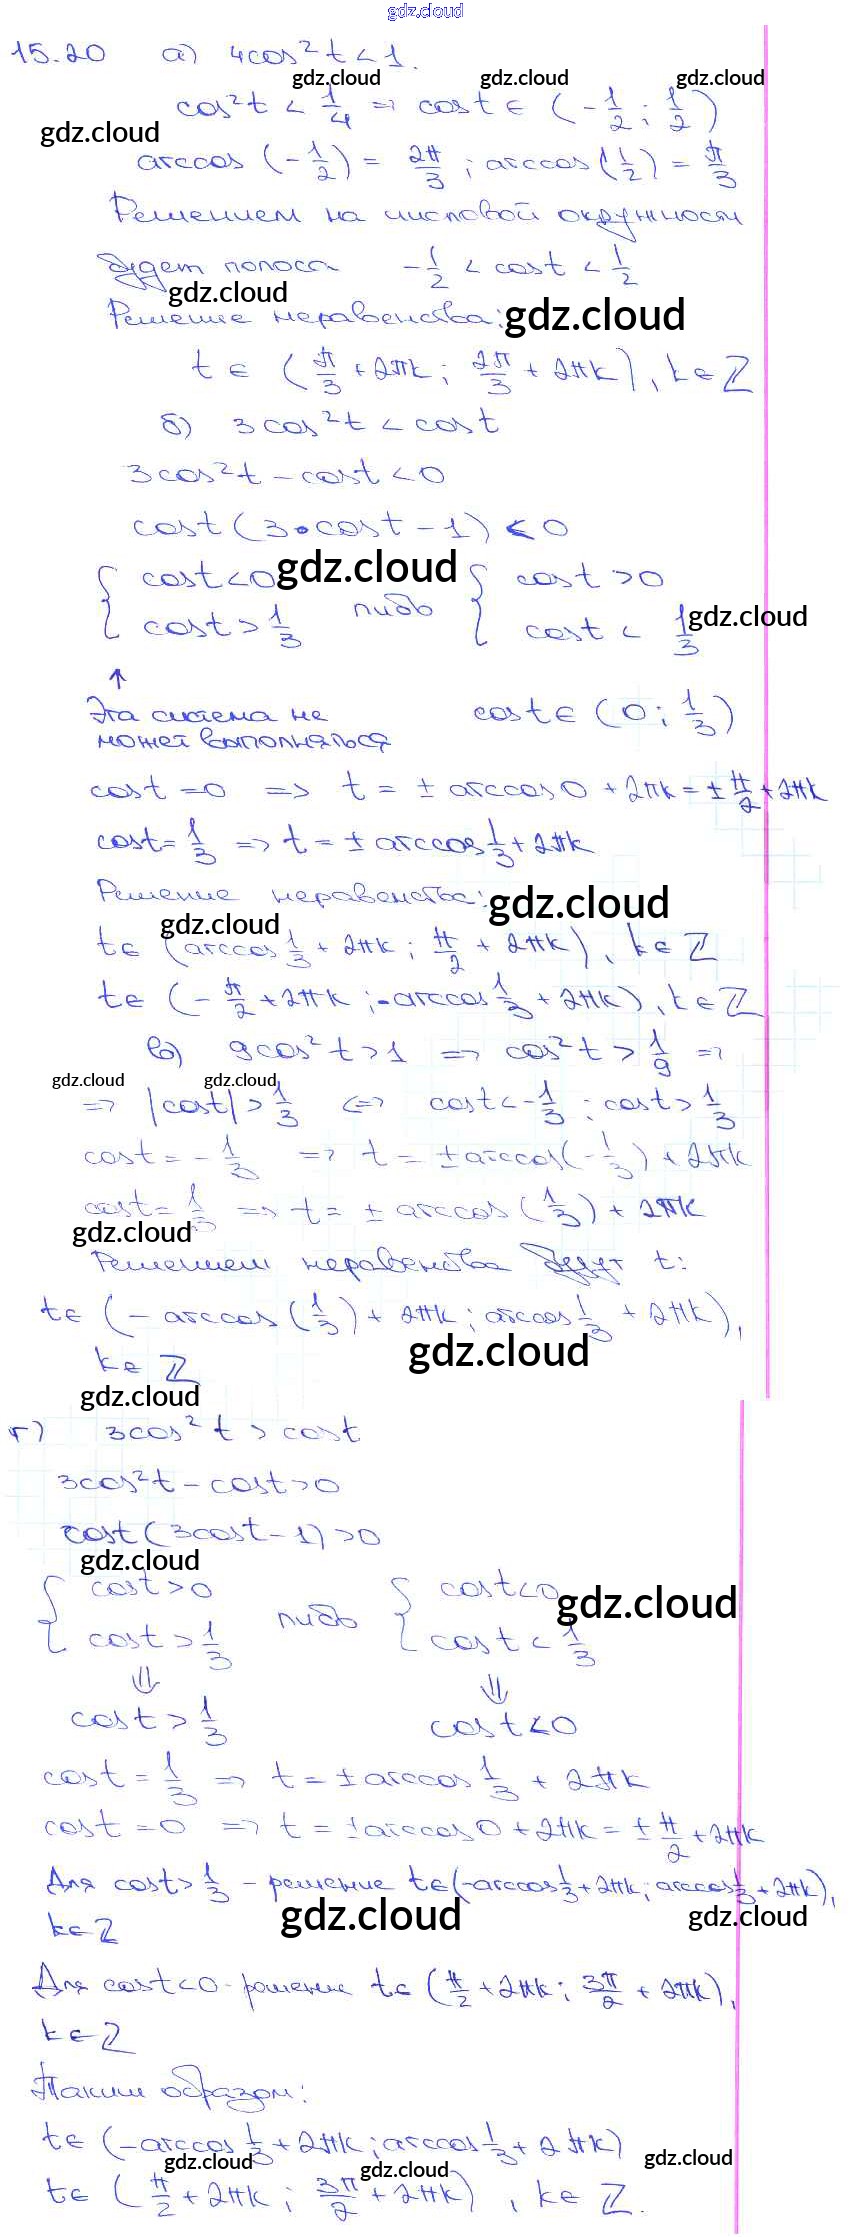 gdz.cloud
15.20 а) 4cos²t < 1.
gdz.cloud gdz.cloud gdz.cloud
cos²t < 1/4 => cos t ∈ (-1/2; 1/2)
gdz.cloud
arccos(-1/2) = 2π/3; arccos(1/2) = π/3
Решением на числовой окружности
будет полоса -1/2 < cost < 1/2
gdz.cloud
Решение неравенства:
gdz.cloud
t ∈ (π/3 + 2πk; 2π/3 + 2πk), k ∈ Z
б) 3cos²t < cost
3cos²t - cost < 0
cost(3·cost - 1) < 0
{ cost < 0 gdz.cloud { cost > 0
cost > 1/3 либо cost < 1/3 gdz.cloud
↑
Эта система не cost ∈ (0; 1/3)
может выполняться
cost = 0 => t = ± arccos 0 + 2πk = ± π/2 + 2πk
cost = 1/3 => t = ± arccos 1/3 + 2πk
Решение неравенства: gdz.cloud
gdz.cloud
t ∈ (arccos 1/3 + 2πk; π/2 + 2πk), k ∈ Z
t ∈ (-π/2 + 2πk; -arccos 1/3 + 2πk), k ∈ Z
в) 9cos²t > 1 => cos²t > 1/9 =>
gdz.cloud gdz.cloud
=> |cost| > 1/3 <=> cost < -1/3; cost > 1/3
cost = -1/3 => t = ± arccos(-1/3) + 2πk
cost = 1/3 => t = ± arccos(1/3) + 2πk
gdz.cloud
Решением неравенства будут t:
t ∈ (-arccos(1/3) + 2πk; arccos 1/3 + 2πk),
gdz.cloud
k ∈ Z
gdz.cloud
г) 3cos²t > cost
3cos²t - cost > 0
cost(3cost - 1) > 0
gdz.cloud
{ cost > 0 { cost < 0 gdz.cloud
cost > 1/3 либо cost < 1/3
⇓ ⇓
cost > 1/3 cost < 0
cost = 1/3 => t = ± arccos 1/3 + 2πk
cost = 0 => t = ± arccos 0 + 2πk = ± π/2 + 2πk
Для cost > 1/3 - решение t ∈ (-arccos 1/3 + 2πk; arccos 1/3 + 2πk),
k ∈ Z gdz.cloud gdz.cloud
Для cost < 0 - решение t ∈ (π/2 + 2πk; 3π/2 + 2πk),
k ∈ Z
Таким образом:
t ∈ (-arccos 1/3 + 2πk; arccos 1/3 + 2πk)
gdz.cloud gdz.cloud gdz.cloud
t ∈ (π/2 + 2πk; 3π/2 + 2πk), k ∈ Z.